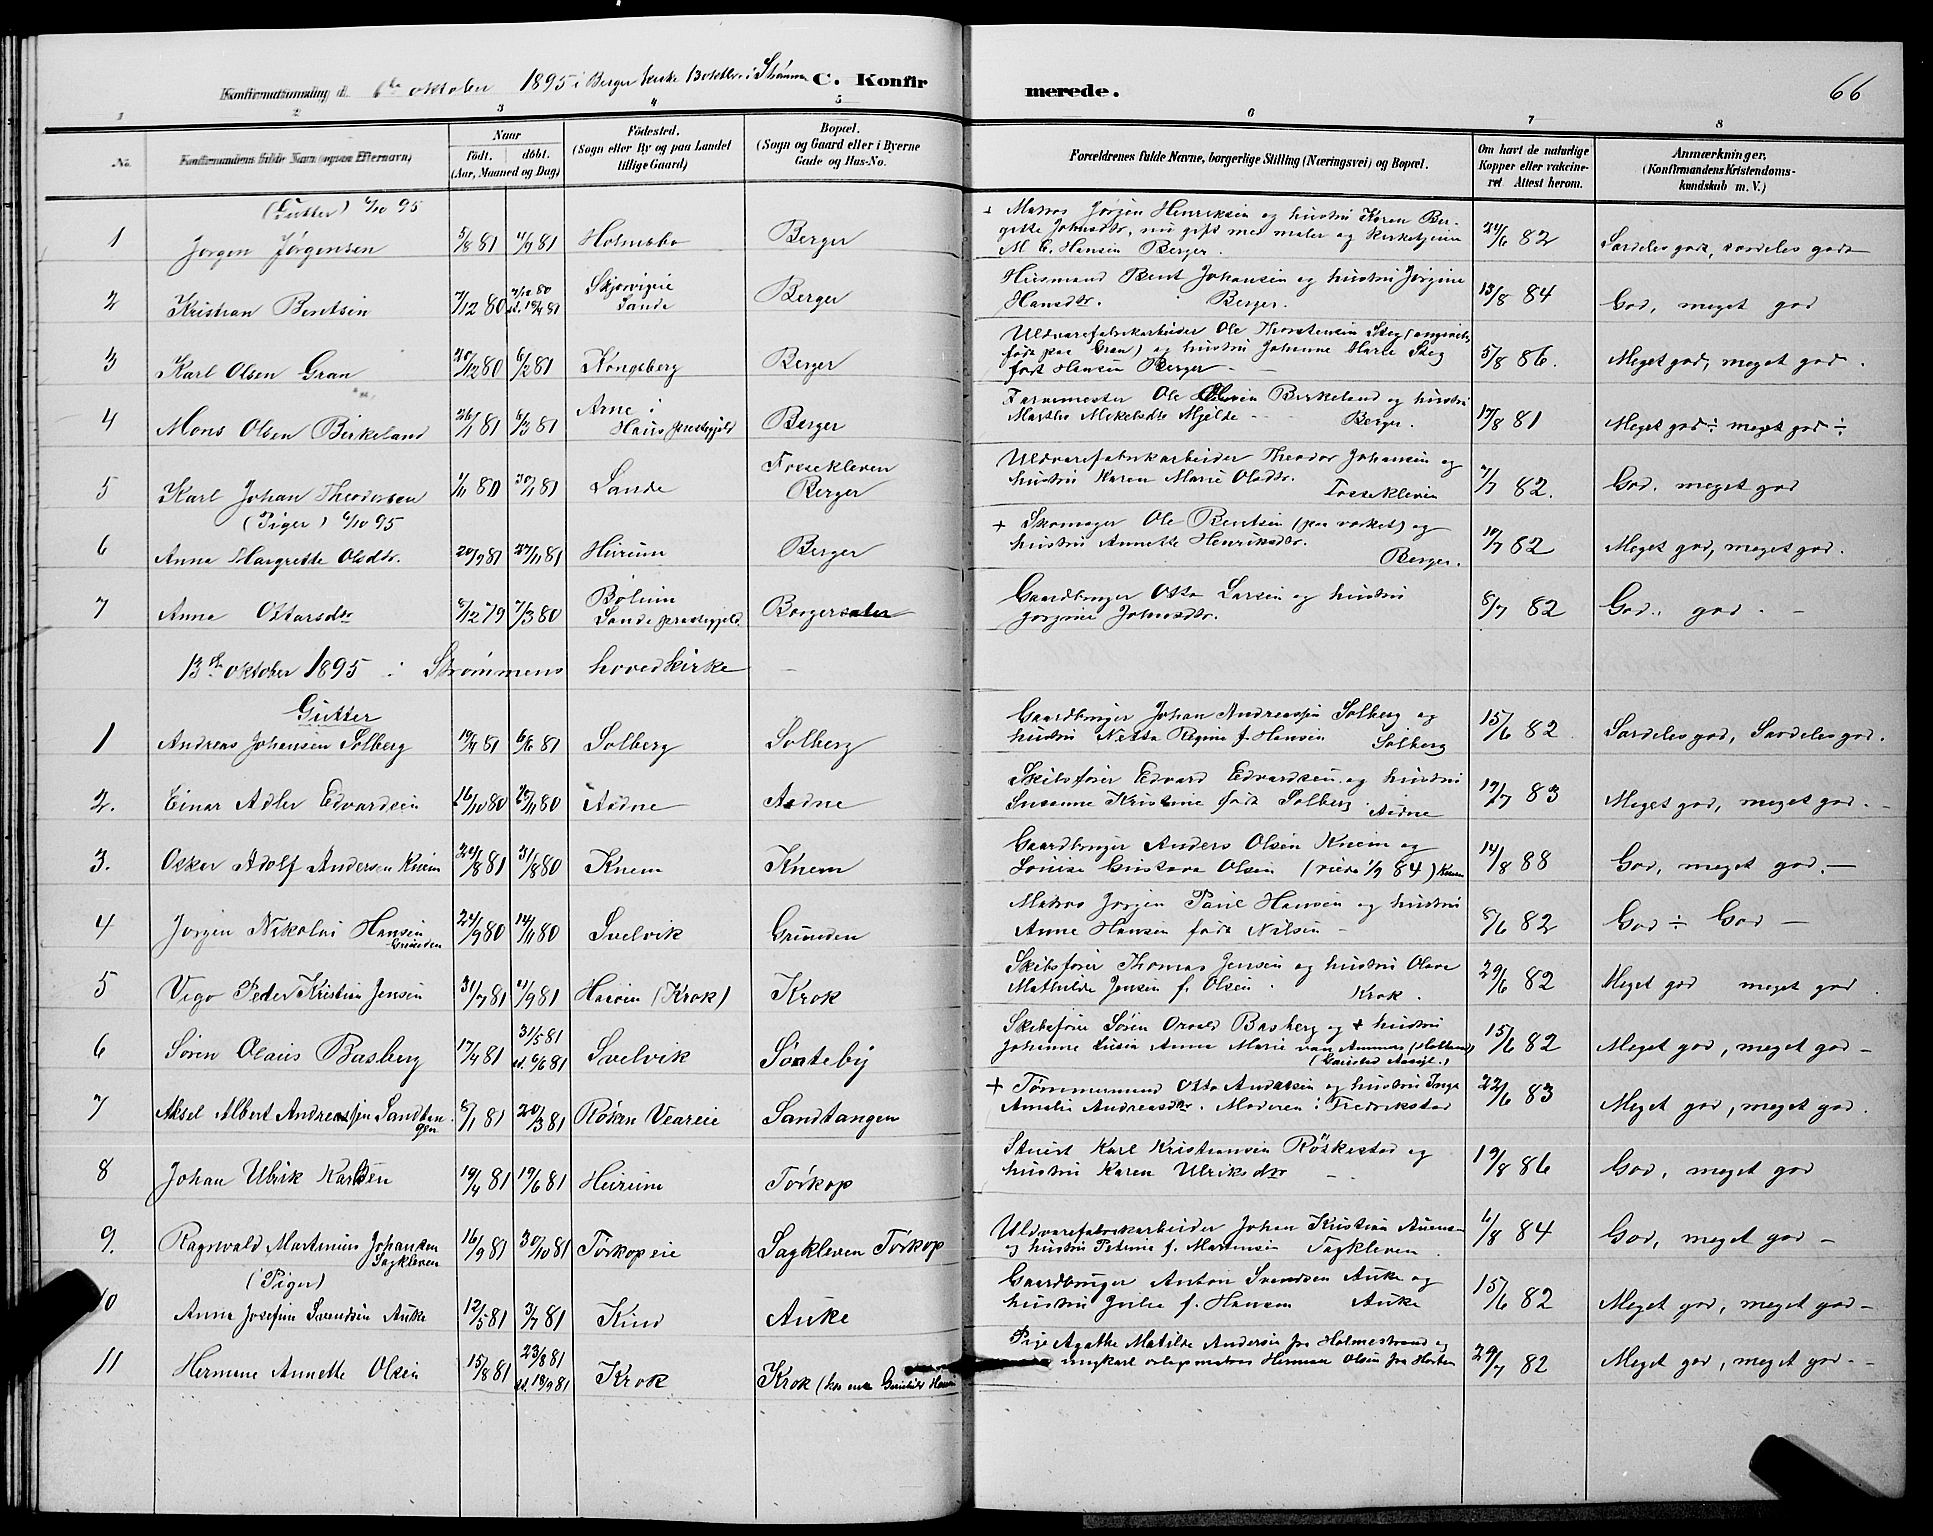 6te oktober 1895 i Berger kirke 13 oktbr. i Strömm C. Konfir merede. 66
1 2 3 4 5 6 7 8
No.
Konfirmandens fulde Navn (ogsaa Efternavn)
Naar
födt. döbt.
(Aar, Maaned og Dag)
Födested.
(Sogn eller By og paa Landet
tillige Gaard)
Bopæl.
(Sogn og Gaard eller i Byerne
Gade og Hus-No.
Forældrenes fulde Navne, borgerlige Stilling (Næringsvei) og Bopæl.
Om havt de naturlige
Kopper eller vakcine-
ret Attest herom.
Anmærkninger.
(Konfirmandens Kristendoms-
kundskab m. V.)
(Gutter) 6/10 95
1 Jørgen Jørgensen 5/8 81 4/9 81 Holmsbo Berger
Matros Jørgen Henriksen og hustru Karen Ber-
gitte Johnsdtr, nu gift med maler og kirketjener
M. C. Hansen Berger. 24/6 82 Særdeles godt, særdeles godt
2 Kristian Bentsen 7/12 80 st. 18/4 81 Sande Berger
Husmand Bent Johansen og hustru Jørgine
Hansdtr. Berger. 13/8 84 God, meget god
3 Karl Olsen Gran 20/12 80 6/2 81 Kongsberg Berger
Uldvarefabrikarbeider Ole Thorstensen Steg
født paa Gran) og hustru Johanne Marie Steg
født Hansen Berger 5/8 86. Meget god, meget god.
4 Mons Olsen Birkeland 26/1 81 6/3 81 Arne i
Haus præstegjeld Berger
Farvemester Ole Olsen Birkeland og hustru
Marthe Mikelsdtr Mjelde Berger. 17/8 81 Meget god ÷ meget god ÷
5 Karl Johan Theodorsen 1/11 80 30/1 81 Sande Fossekleven
Berger
Uldvarefabrikarbeider Theodor Johansen og
hustru Karen Marie Olsdtr. Fossekleven 7/7 82. God. meget god
(Piger) 6/10 95
6 Anna Margrethe Olsdtr. 20/9 81 27/11 81 Hurum Berger
+ Skomager Ole Bentsen (paa verket) og
hustru Annette Henriksdtr. Berger. 10/7 82 Meget god, meget god.
7 Anna Ottarsdtr 6/12 79 7/3 80 Bølum
Sande præstegjeld. Bergersæter
Gaardbruger Otto Larsen og hustru
Jørgine Johnsdtr. 8/7 82 God. god.
13de oktober 1895 i Strømmens hovedkirke
Gutter
1 Andreas Johansen Solberg 19/4 81 6/6 81 Solberg Solberg
Gaardbruger Johan Andreassen Solberg og
hustru Netta Regine f. Hansen Solberg 15/6 82. Særdeles god, Særdeles god.
2. Einar Adler Edvardsen 16/10 80 26/11 80 Aadne Aadne
Skibsfører Edvard Edvardsen og hustru
Susanne Kristine født Solberg. Aadne 19/7 83 Meget god, meget god.
3. Oskar Adolf Andersen Knem 24/8 81 31/8 80 Knem Knem
Gaardbruger Anders Olsen Knem og
Louise Gustava Olsen (viede 1/9 84) Knem 14/8 88 God, meget god.
4 Jørgen Nikolai Hansen
Grunden 24/9 80 14/11 80 Svelvik Grunden
Matros Jørgen Paul Hansen og hustru
Anne Hansen født Nilsen 8/6 82 God ÷ God
5 Vigo Peder Kristian Jensen 31/7 81 4/9 81 Havn (Krok) Krok
Skibsfører Thomas Jensen og hustru Olava
Mathilde Jensen f. Olsen. Krok. 29/6 82 Meget god meget god
6 Søren Olaus Basberg 17/4 81 31/5 81
st. 6/6 81 Svelvik Sønteby
Skibsfører Søren Basberg og + hustru
Johanne Lusia Anna Marie van Ammers (Holland) 15/6 82 Meget god, meget god
7 Aksel Albert Andreassen Sandtan-
gen 8/1 81 20/3 81 Røken Sandtangen
+ Tømmermand Otto Andersen og hustru Inga
Amalie Andreasdtr. Moderen i Fredrikstad 22/6 83 Meget god, meget god.
8 Johan Ulrik Karlsen 19/4 81 19/6 81 Hurum Tørkop
Stuert Karl Kristiansen Röskestad og
hustru Karen Ulriksdtr 19/8 86 God, meget god
9. Ragnvald Martinius Johansen
Sagkleven 16/9 81 30/10 81 Tørkopeie Sagkleven Tørkop
Uldvarefabrikarbeider Johan Kristian
og hustru Petrine f. Martinsen Sagkleven 6/8 84 God, meget god
(Piger)
10 Anna Josefine Svendsen Auke 12/5 81 3/7 81 Kind Auke
Gaardbruger Anton Svendsen Auke og
hustru Julie f. Hansen Auke 15/6 82 Meget god, meget god
11 Hermine Annette Olsen 15/8 81 23/8 81
st. 18/9 81 Krok Krok (hos enke
Pige Agathe Matilde Andersen fra Holmestrand og
ungkarl matros Herman Olsen fra Horten 29/7 82 Meget god, meget god